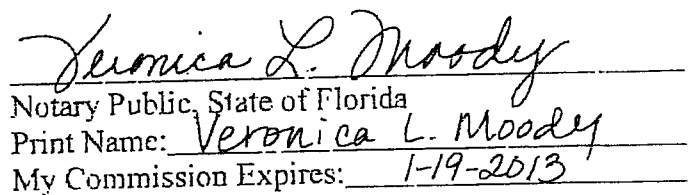 Veronica L. Moody
Notary Public, State of Florida
Print Name: Veronica L. Moody
My Commission Expires: 1-19-2013